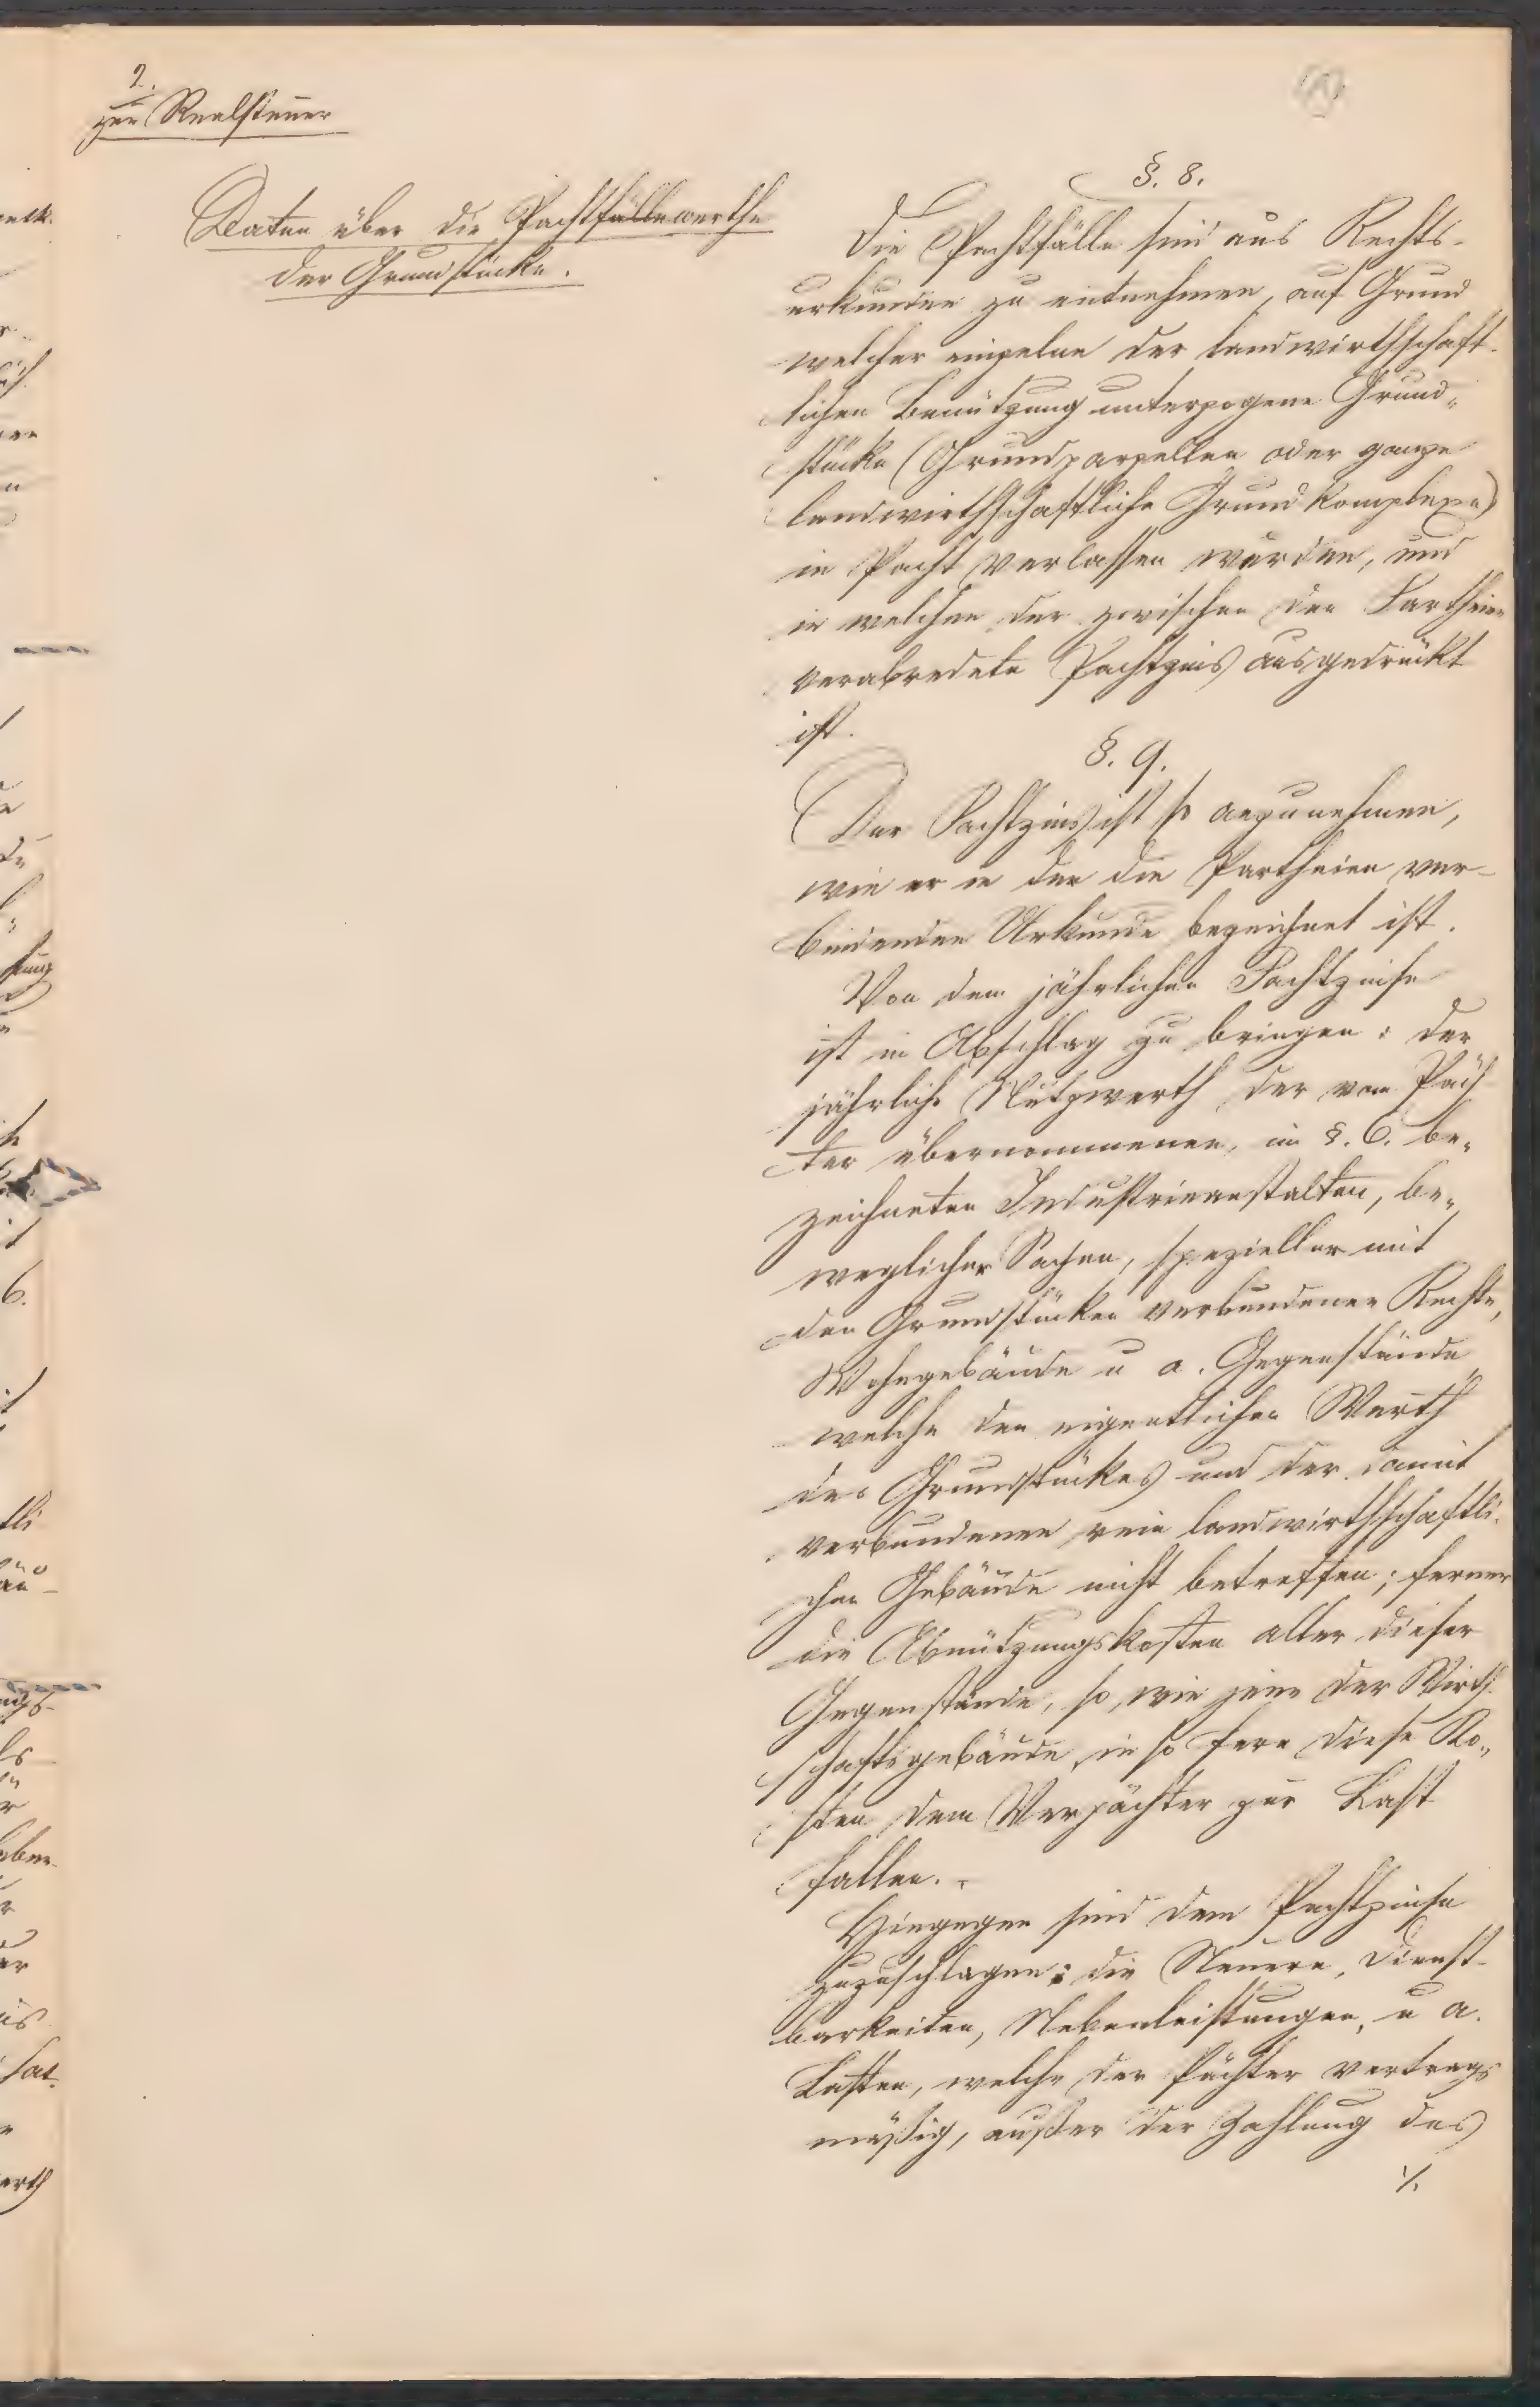 2.
zur Realsteuer
Daten über die Pachtfällewerthe
der Grundstücke.
§. 8.
Die Pachtfälle sind aus Rechts-
urkunden zu entnehmen, auf Grund
welcher einzelne der landwirthschaft-
lichen Benützung unterzogene Grund-
stücke (Grundparzellen oder ganze
landwirthschaftliche Grundkomplexe)
in Pacht verlassen wurden, und
in welchen der zwischen den Partheien
verabredete Pachtzins ausgedrückt
ist.
§. 9.
Der Pachtzins ist so anzunehmen,
wie er in der die Partheien ver-
bindenden Urkunde bezeichnet ist.
Von dem jährlichen Pachtzinse
ist in Abschlag zu bringen: der
jährliche Nutzwerth der vom Päch
ter übernommenen, im §. 6. be-
zeichneten Industrieanstalten, be-
weglicher Sachen, spezieller mit
den Grundstücken verbundener Rechte,
Wohngebäude u a. Gegenstände,
welche den eigentlichen Werth
des Grundstückes und der damit
verbundenen rein landwirthschaftli-
chen Gebäude nicht betreffen; ferner
die Abnützungskosten aller dieser
Gegenstände, so, wie jene der Wirth
schaftsgebäude, in so fern diese Ko-
sten dem Verpächter zur Last
fallen.
Hingegen sind dem Pachtzinse
zuzuschlagen: die Steuern, Dienst-
barkeiten, Nebenleistungen, u a.
Lasten, welche der Pächter vertrags
mäßig, außer der Zahlung des
./.